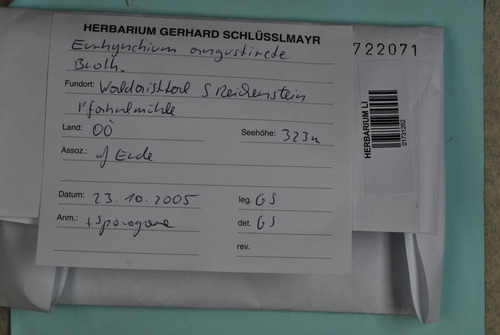 HERBARIUM GERHARD SCHLÜSSLMAYR
Eurhynchium angustirete
Broth.
Fundort: Waldaisttal S Reichenstein
Pfahnlmühle
Land: OÖ Seehöhe: 323m
Assoz.: auf Erde
Datum: 23.10.2005 leg. GS
Anm.: +Sporogone det. GS
rev.
722071
HERBARIUM LI